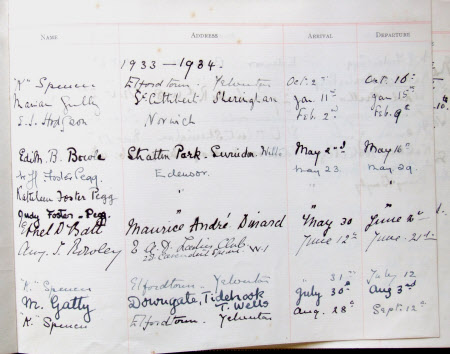 NAME ADDRESS ARRIVAL DEPARTURE
1933 — 1934.
"K" Spencer Elfordtown. Yelverton Oct. 2nd Oct. 10th
Marian Gatty St Cuthbert Sheringham Jan. 11th Jan. 15th
Norwich Feb. 2nd Feb. 9th
Edith B. Bowle Stratton Park. Swindon. Wilts. May 2nd May 16th
Foster Pegg. Edensor. May 23. May 29.
Kathleen Foster Pegg "
Judy Foster-Pegg. "
Ethel D. Batt Maurice André Dinard May 30 June
Rowley E. A. D. Ladies Club June 12th June. 21st
29 Cavendish Square W1
"K" Spencer Elfordtown. Yelverton 31st July 12
M. Gatty Downgate, Tidebrook July 30th Aug 3rd
T. Wells
"K" Spencer Elfordtown. Yelverton Aug. 28th Sept. 12th